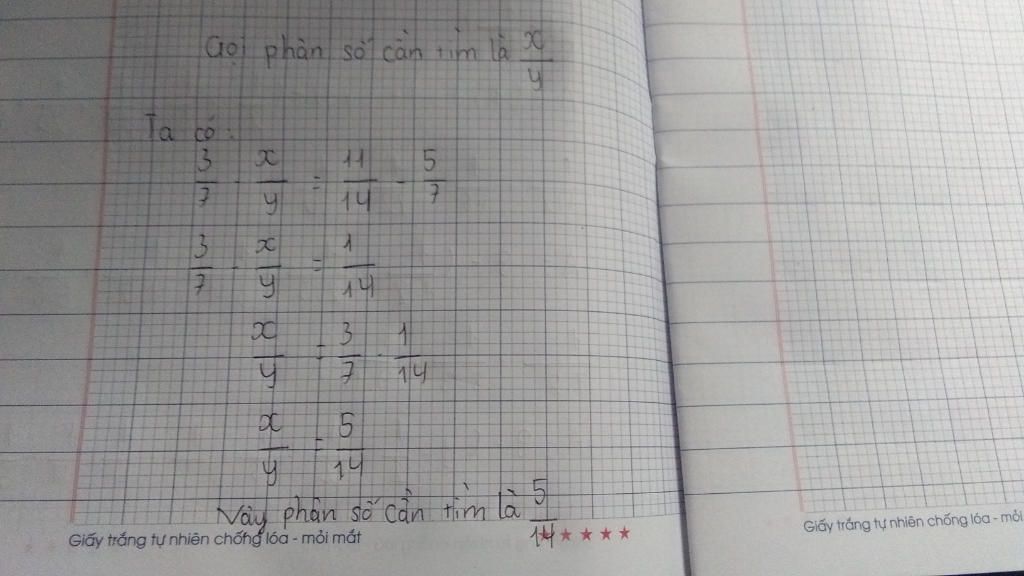 Gọi phân số cần tìm là x/y
Ta có:
3/7 - x/y = 11/14 - 5/7
3/7 - x/y = 1/14
x/y = 3/7 - 1/14
x/y = 5/14
Vậy phân số cần tìm là 5/14
Giấy trắng tự nhiên chống lóa - mỏi mắt
Giấy trắng tự nhiên chống lóa - mỏi